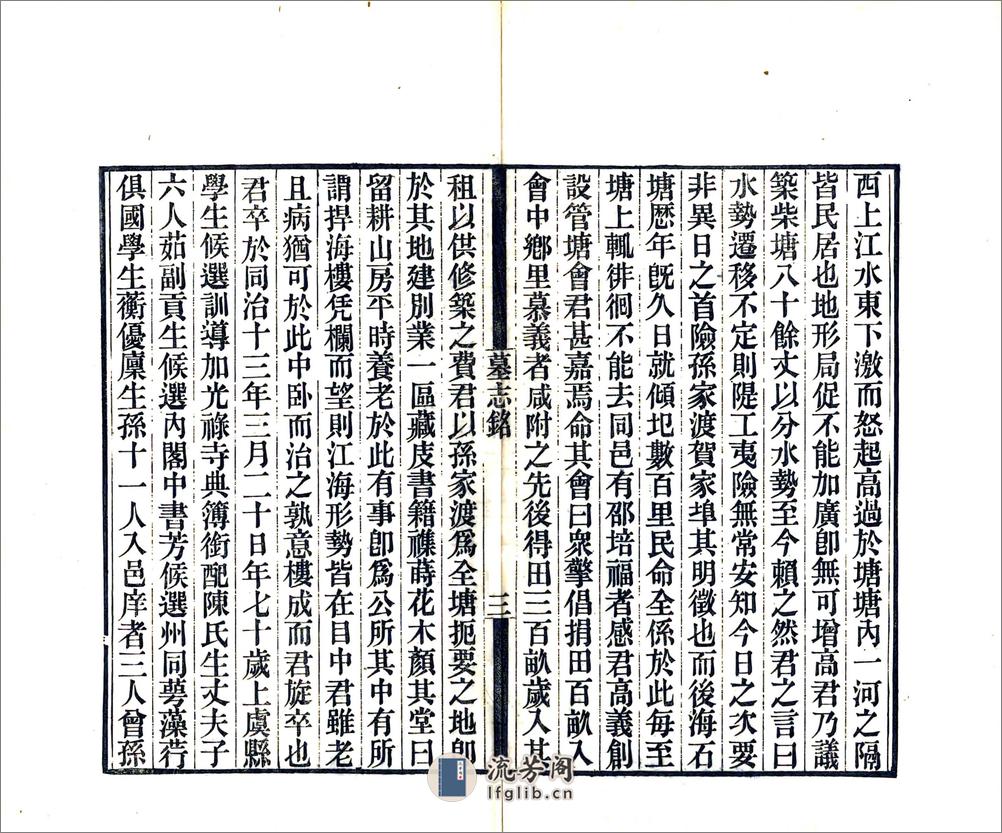 西上江水東下激而怒起高過於塘塘內一河之隔
皆民居也地形局促不能加廣卽無可增高君乃議
築柴塘八十餘丈以分水勢至今賴之然君之言曰
水勢遷移不定則隄工夷險無常安知今日之次要
非異日之首險孫家渡賀家埠其明徵也而後海石
塘歷年旣久日就傾圯數百里民命全係於此每至
塘上輒徘徊不能去同邑有邵培福者感君高義創
設管塘會君甚嘉焉命其會曰衆擎倡捐田百畝入
會中鄉里慕義者咸附之先後得田三百畝歲入其
墓志銘
三
租以供修築之費君以孫家渡爲全塘扼要之地卽
於其地建別業一區藏庋書籍襍蒔花木顏其堂曰
留耕山房平時養老於此有事卽爲公所其中有所
謂捍海樓凭欄而望則江海形勢皆在目中君雖老
且病猶可於此中卧而治之孰意樓成而君旋卒也
君卒於同治十三年三月二十日年七十歲上虞縣
學生候選訓導加光祿寺典簿銜配陳氏生丈夫子
六人茹副貢生候選內閣中書芳候選州同蕚藻荇
俱國學生蘅優廩生孫十一人入邑庠者三人曾孫
流芳阁
lfglib.cn